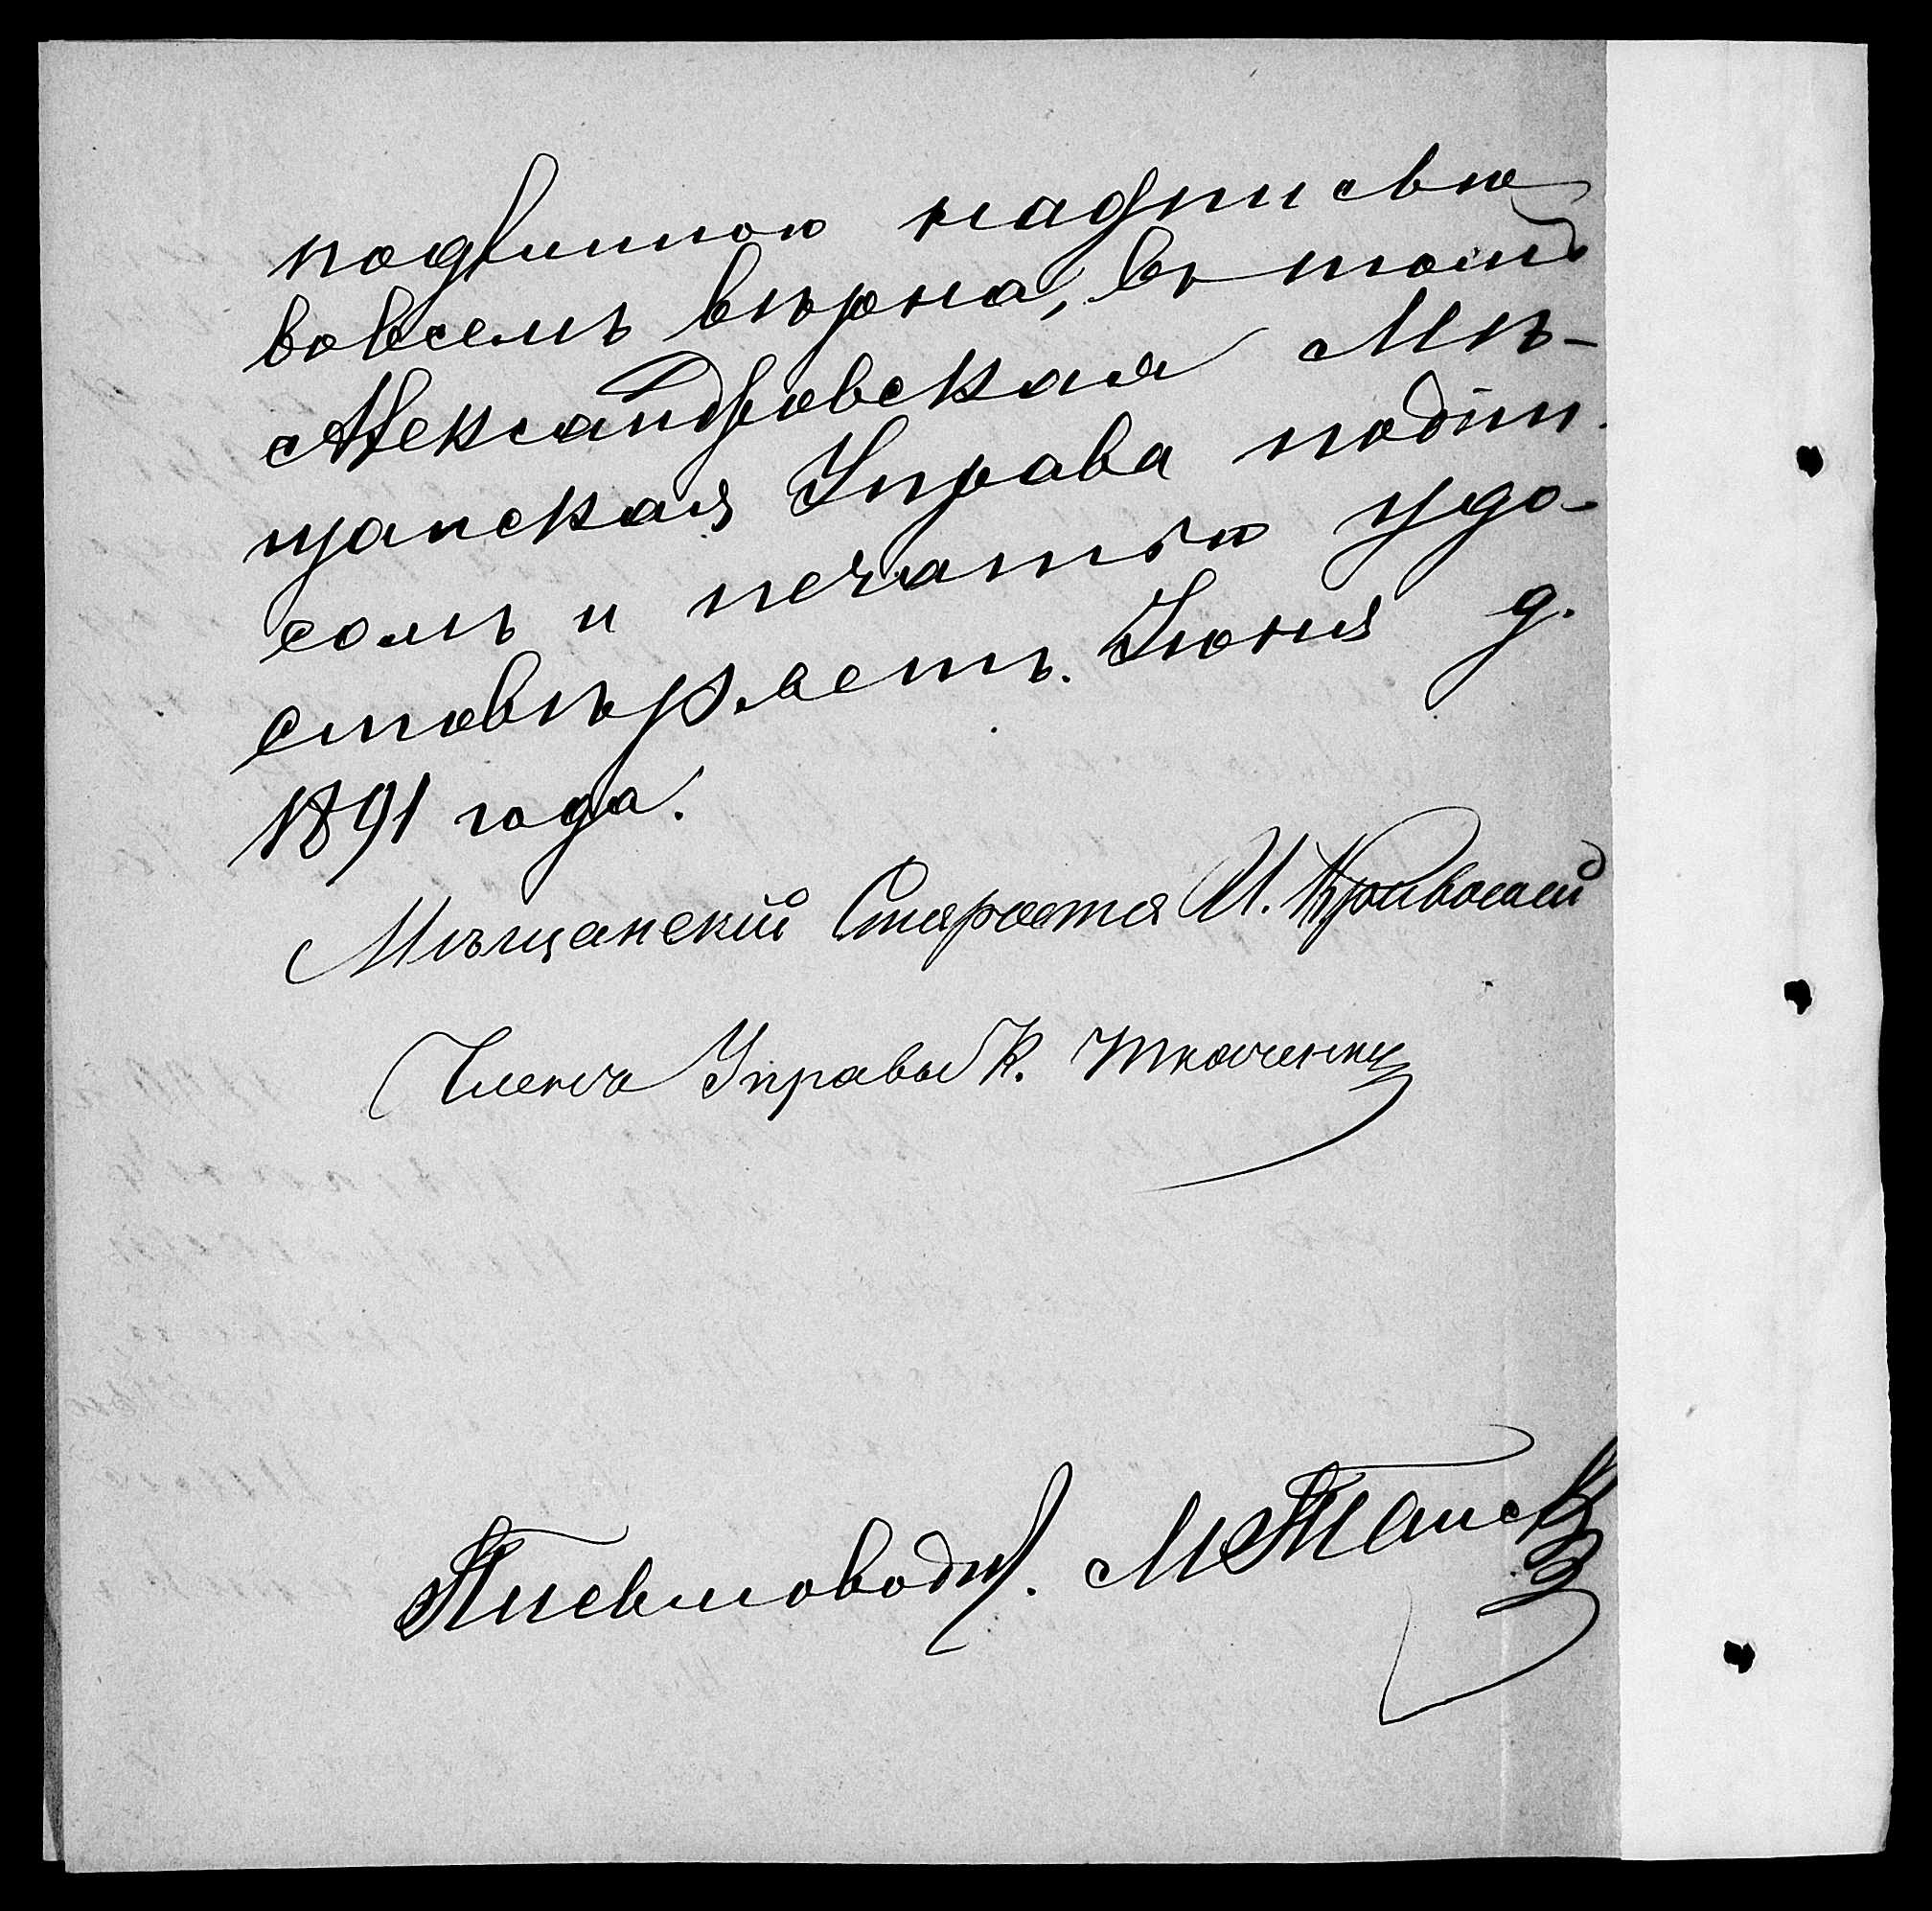 подлинною надписью
вовсемъ вѣрна, въ томъ
Александровская Мѣ-
щанская Управа подпи-
сомъ и печатью удо-
стовѣряетъ. Іюня д.
1891 года.
Мѣщанскій Староста И. Кривошей
Членъ Управы К. Ткаченку
Письмоводит.